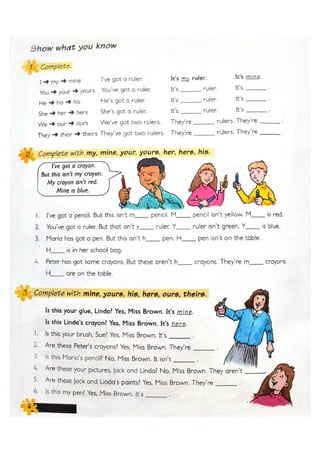 Show what you know
1 Complete.
I ➔ my ➔ mine I've got a ruler. It's my ruler. It's mine.
You ➔ your ➔ yours You've got a ruler. It's ______ ruler. It's ______ .
He ➔ his ➔ his He's got a ruler. It's ______ ruler. It's ______ .
She ➔ her ➔ hers She's got a ruler. It's ______ ruler. It's ______ .
We ➔ our ➔ ours We've got two rulers. They're ______ rulers. They're ______ .
They ➔ their ➔ theirs They've got two rulers. They're ______ rulers. They're ______ .
2 Complete with my, mine, your, yours, her, hers, his.
I've got a crayon.
But this isn't my crayon.
My crayon isn't red.
Mine is blue.
1. I've got a pencil. But this isn't m____ pencil. M____ pencil isn't yellow. M____ is red.
2. You've got a ruler. But that isn't y____ ruler. Y____ ruler isn't green. Y____ is blue.
3. Maria has got a pen. But this isn't h____ pen. H____ pen isn't on the table.
H____ is in her school bag.
4. Peter has got some crayons. But these aren't h____ crayons. They're m____ crayons.
H____ are on the table.
3 Complete with mine, yours, his, hers, ours, theirs.
Is this your glue, Linda? Yes, Miss Brown. It's mine.
Is this Linda's crayon? Yes, Miss Brown. It's hers.
1. Is this your brush, Sue? Yes, Miss Brown. It's ______ .
2. Are these Peter's crayons? Yes, Miss Brown. They're ______ .
3. Is this Maria's pencil? No, Miss Brown. It isn't ______ .
4. Are these your pictures, Jack and Linda? No, Miss Brown. They aren't ______ .
5. Are these Jack and Linda's paints? Yes, Miss Brown. They're ______ .
6. Is this my pen? Yes, Miss Brown. It's ______ .